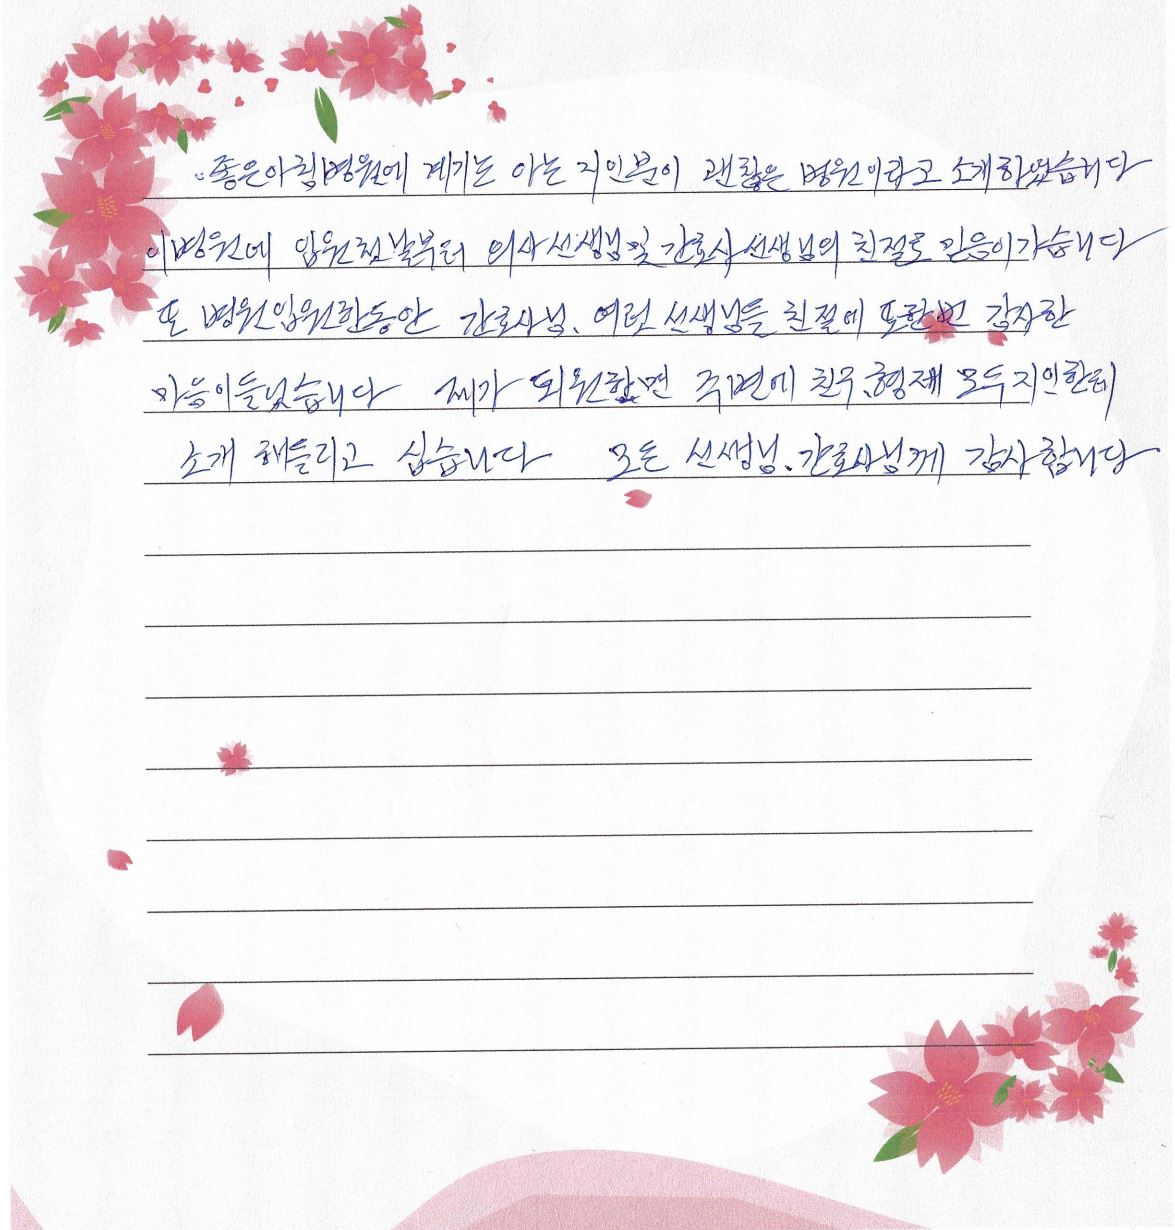 좋은아침병원에 계기는 아는 지인분이 괜찮은 병원이라고 소개하였습니다
이병원에 입원첫날부터 의사선생님및 간호사선생님의 친절로 믿음이가습니다
또 병원입원한동안 간호사님, 여러 선생님들 친절에 또한번 감사한
마음이들었습니다 제가 퇴원하면 주변에 친우,형제 모두지인한테
소개 해들리고 십습니다 모든 선생님,간호사님께 감사합니다